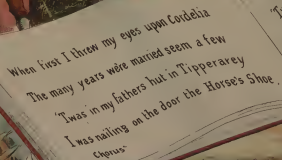 When first I threw my eyes upon Cordelia
The many years we're married seem a few
'Twas in my fathers hut in Tipperarey
I was nailing on the door the Horse's Shoe.
Chorus